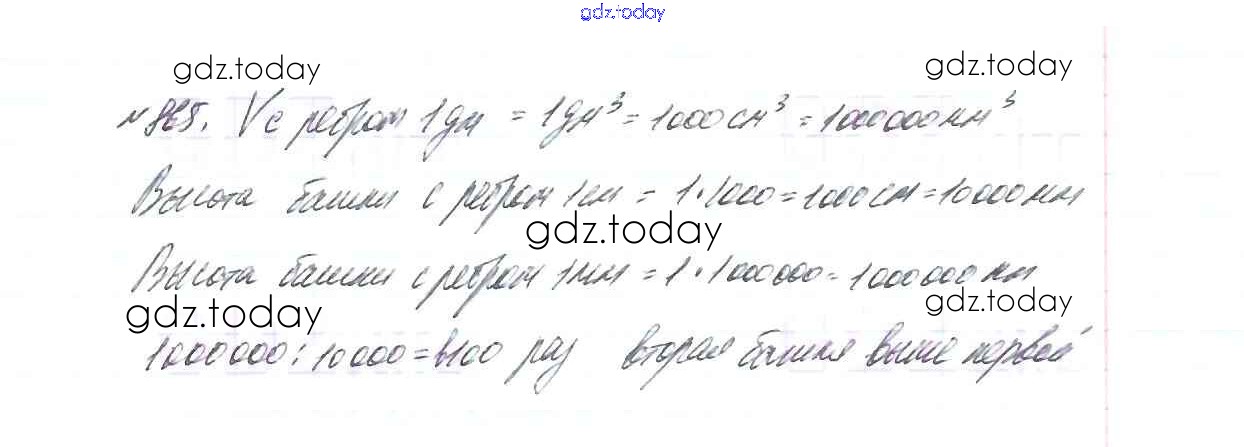 gdz.today
gdz.today
gdz.today
№865. V с ребром 1дм = 1дм³ = 1000см³ = 1000000мм³
Высота башни с ребром 1см = 1·1000 = 1000см = 10000мм
gdz.today
Высота башни с ребром 1мм = 1·1000000 = 1000000мм
gdz.today
gdz.today
1000000:10000=в100 раз вторая башня выше первой